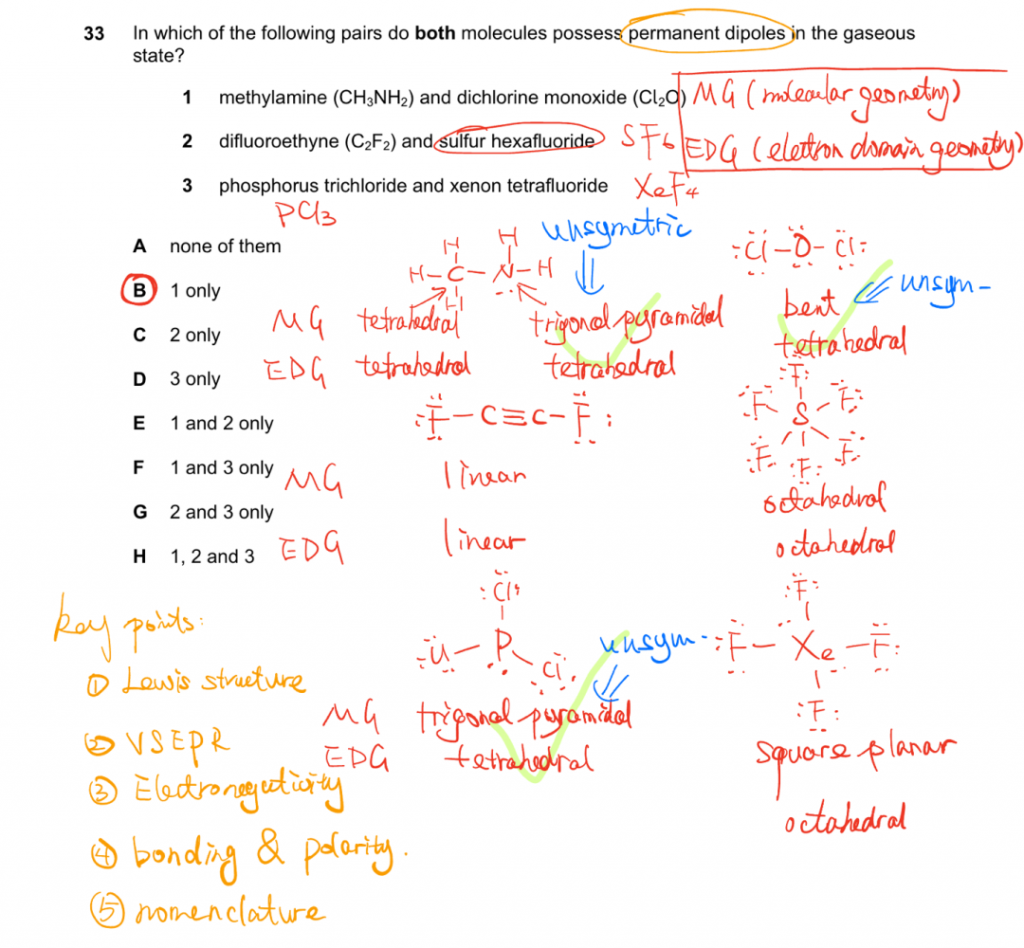 33 In which of the following pairs do both molecules possess permanent dipoles in the gaseous
state?
1 methylamine (CH₃NH₂) and dichlorine monoxide (Cl₂O) MG (molecular geometry)
2 difluoroethyne (C₂F₂) and sulfur hexafluoride SF6 EDG (elettron domain geometry)
3 phosphorus trichloride and xenon tetrafluoride XeF4
PCl3
A none of them
B 1 only
C 2 only
D 3 only
E 1 and 2 only
F 1 and 3 only
G 2 and 3 only
H 1, 2 and 3
unsymetric
H H
H-C-N-H
H
:Cl-O-Cl:
unsym-
MG tetrahedral trigonal pyramidal bent
EDG tetrahedral tetrahedral tetrahedral
:F-C≡C-F:
F
F S F
F F F
MG linear octahedral
EDG linear octahedral
:Cl:
P
Cl
unsym-
:F:
:F-Xe-F:
:F:
MG trigonal pyramidal square planar
EDG tetrahedral octahedral
key points:
① Lewis structure
② VSEPR
③ Electronegativity
④ bonding & polarity.
⑤ nomenclature